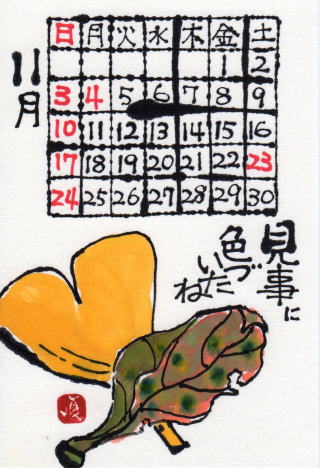 11月
日 月 火 水 木 金 土
1 2
3 4 5 6 7 8 9
10 11 12 13 14 15 16
17 18 19 20 21 22 23
24 25 26 27 28 29 30
見事に
色づ
いたね